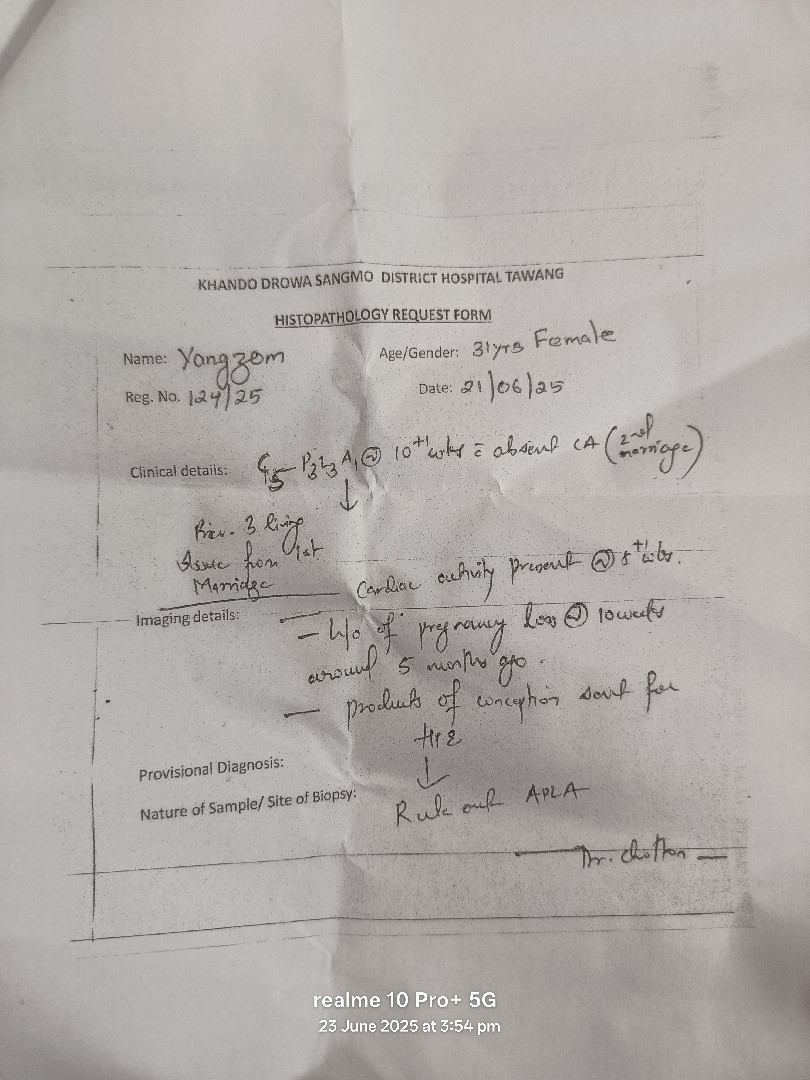 KHANDO DROWA SANGMO DISTRICT HOSPITAL TAWANG
HISTOPATHOLOGY REQUEST FORM
Name: Yangzom Age/Gender: 31yrs Female
Reg. No. 124/25 Date: 21/06/25
Clinical details: G5 P3L3A1 @ 10+1 wks c absent CA (2nd marriage)
Prev. 3 living
Issue from 1st
Marriage
Cardiac activity present @ 5+1 wks.
Imaging details:
- H/o of pregnancy loss @ 10 weeks
around 5 months go.
- products of conception sent for
HPE
Provisional Diagnosis:
Nature of Sample/ Site of Biopsy:
Rule out APLA
realme 10 Pro+ 5G
23 June 2025 at 3:54 pm